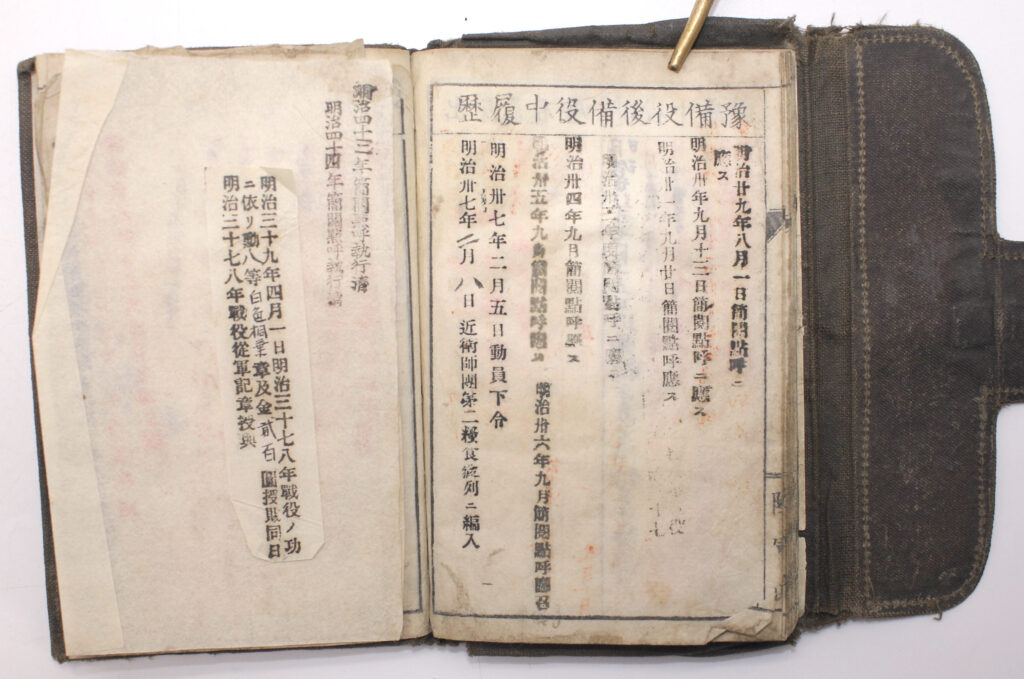 豫備役後備役中履歷
明治廿九年八月一日簡閲點呼ニ
應ス
明治卅年九月十三日簡閲點呼ニ應ス
明治卅一年九月廿日簡閲點呼應ス
明治卅四年九月簡閲點呼應ス
明治卅五年九月簡閲點呼應ス 明治卅六年九月簡閲點呼應召
明治卅七年二月五日動員下令
明治卅七年二月八日近衛師團第二糧食縱列ニ編入
明治四十三年簡閲點呼執行濟
明治四十四年簡閲點呼執行濟
明治三十九年四月一日明治三十七八年戰役ノ功
ニ依リ勳八等白色桐葉章及金貳百圓授賜同日
明治三十七八年戰役從軍記章授與